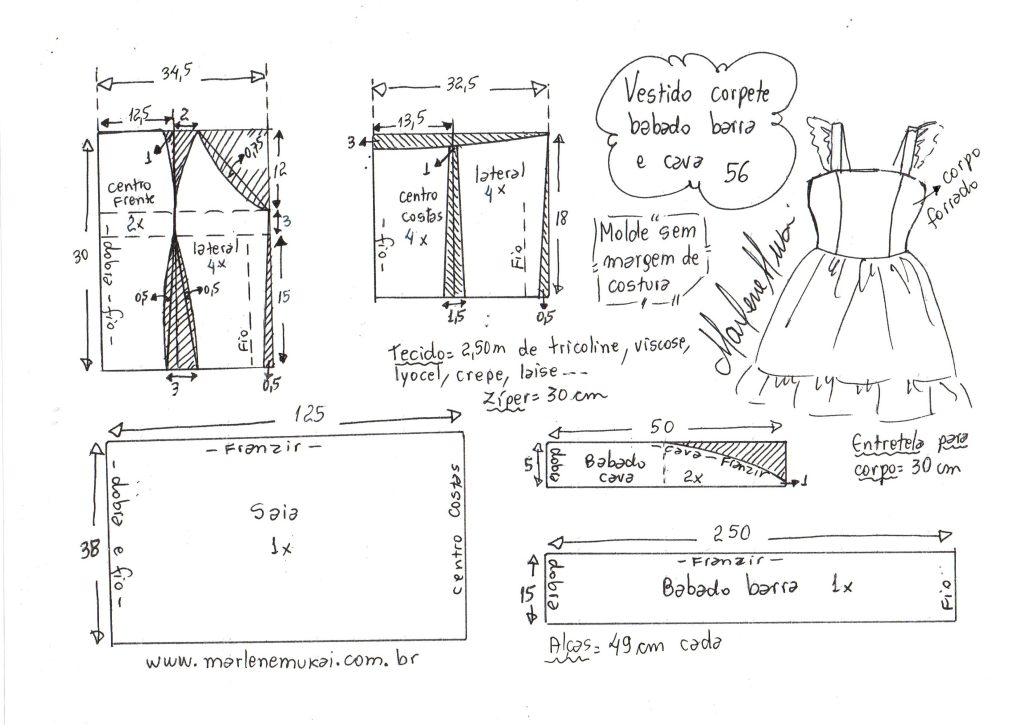 34,5
12,5
2
1
0,75
12
centro
Frente
2x
3
30
- dobra - fio -
lateral
4x
0,5
0,5
15
Fio
3
0,5
32,5
13,5
3
1
lateral
4x
centro
costas
4x
- fio -
Fio
18
1,5
0,5
Vestido corpete
babado barra
e cava 56
Molde sem
margem de
costura
Marlene Mukai
corpo
forrado
Tecido = 2,50m de tricoline, viscose,
lyocel, crepe, laise ---
Zíper = 30 cm
125
- Franzir -
- dobra e fio -
38
Saia
1x
centro costas
50
5
dobra
Babado
cava
2x
- cava - Franzir
1
Entretela para
corpo = 30 cm
250
- Franzir -
15
dobra
Babado barra 1x
Fio
Alças = 49 cm cada
www.marlenemukai.com.br